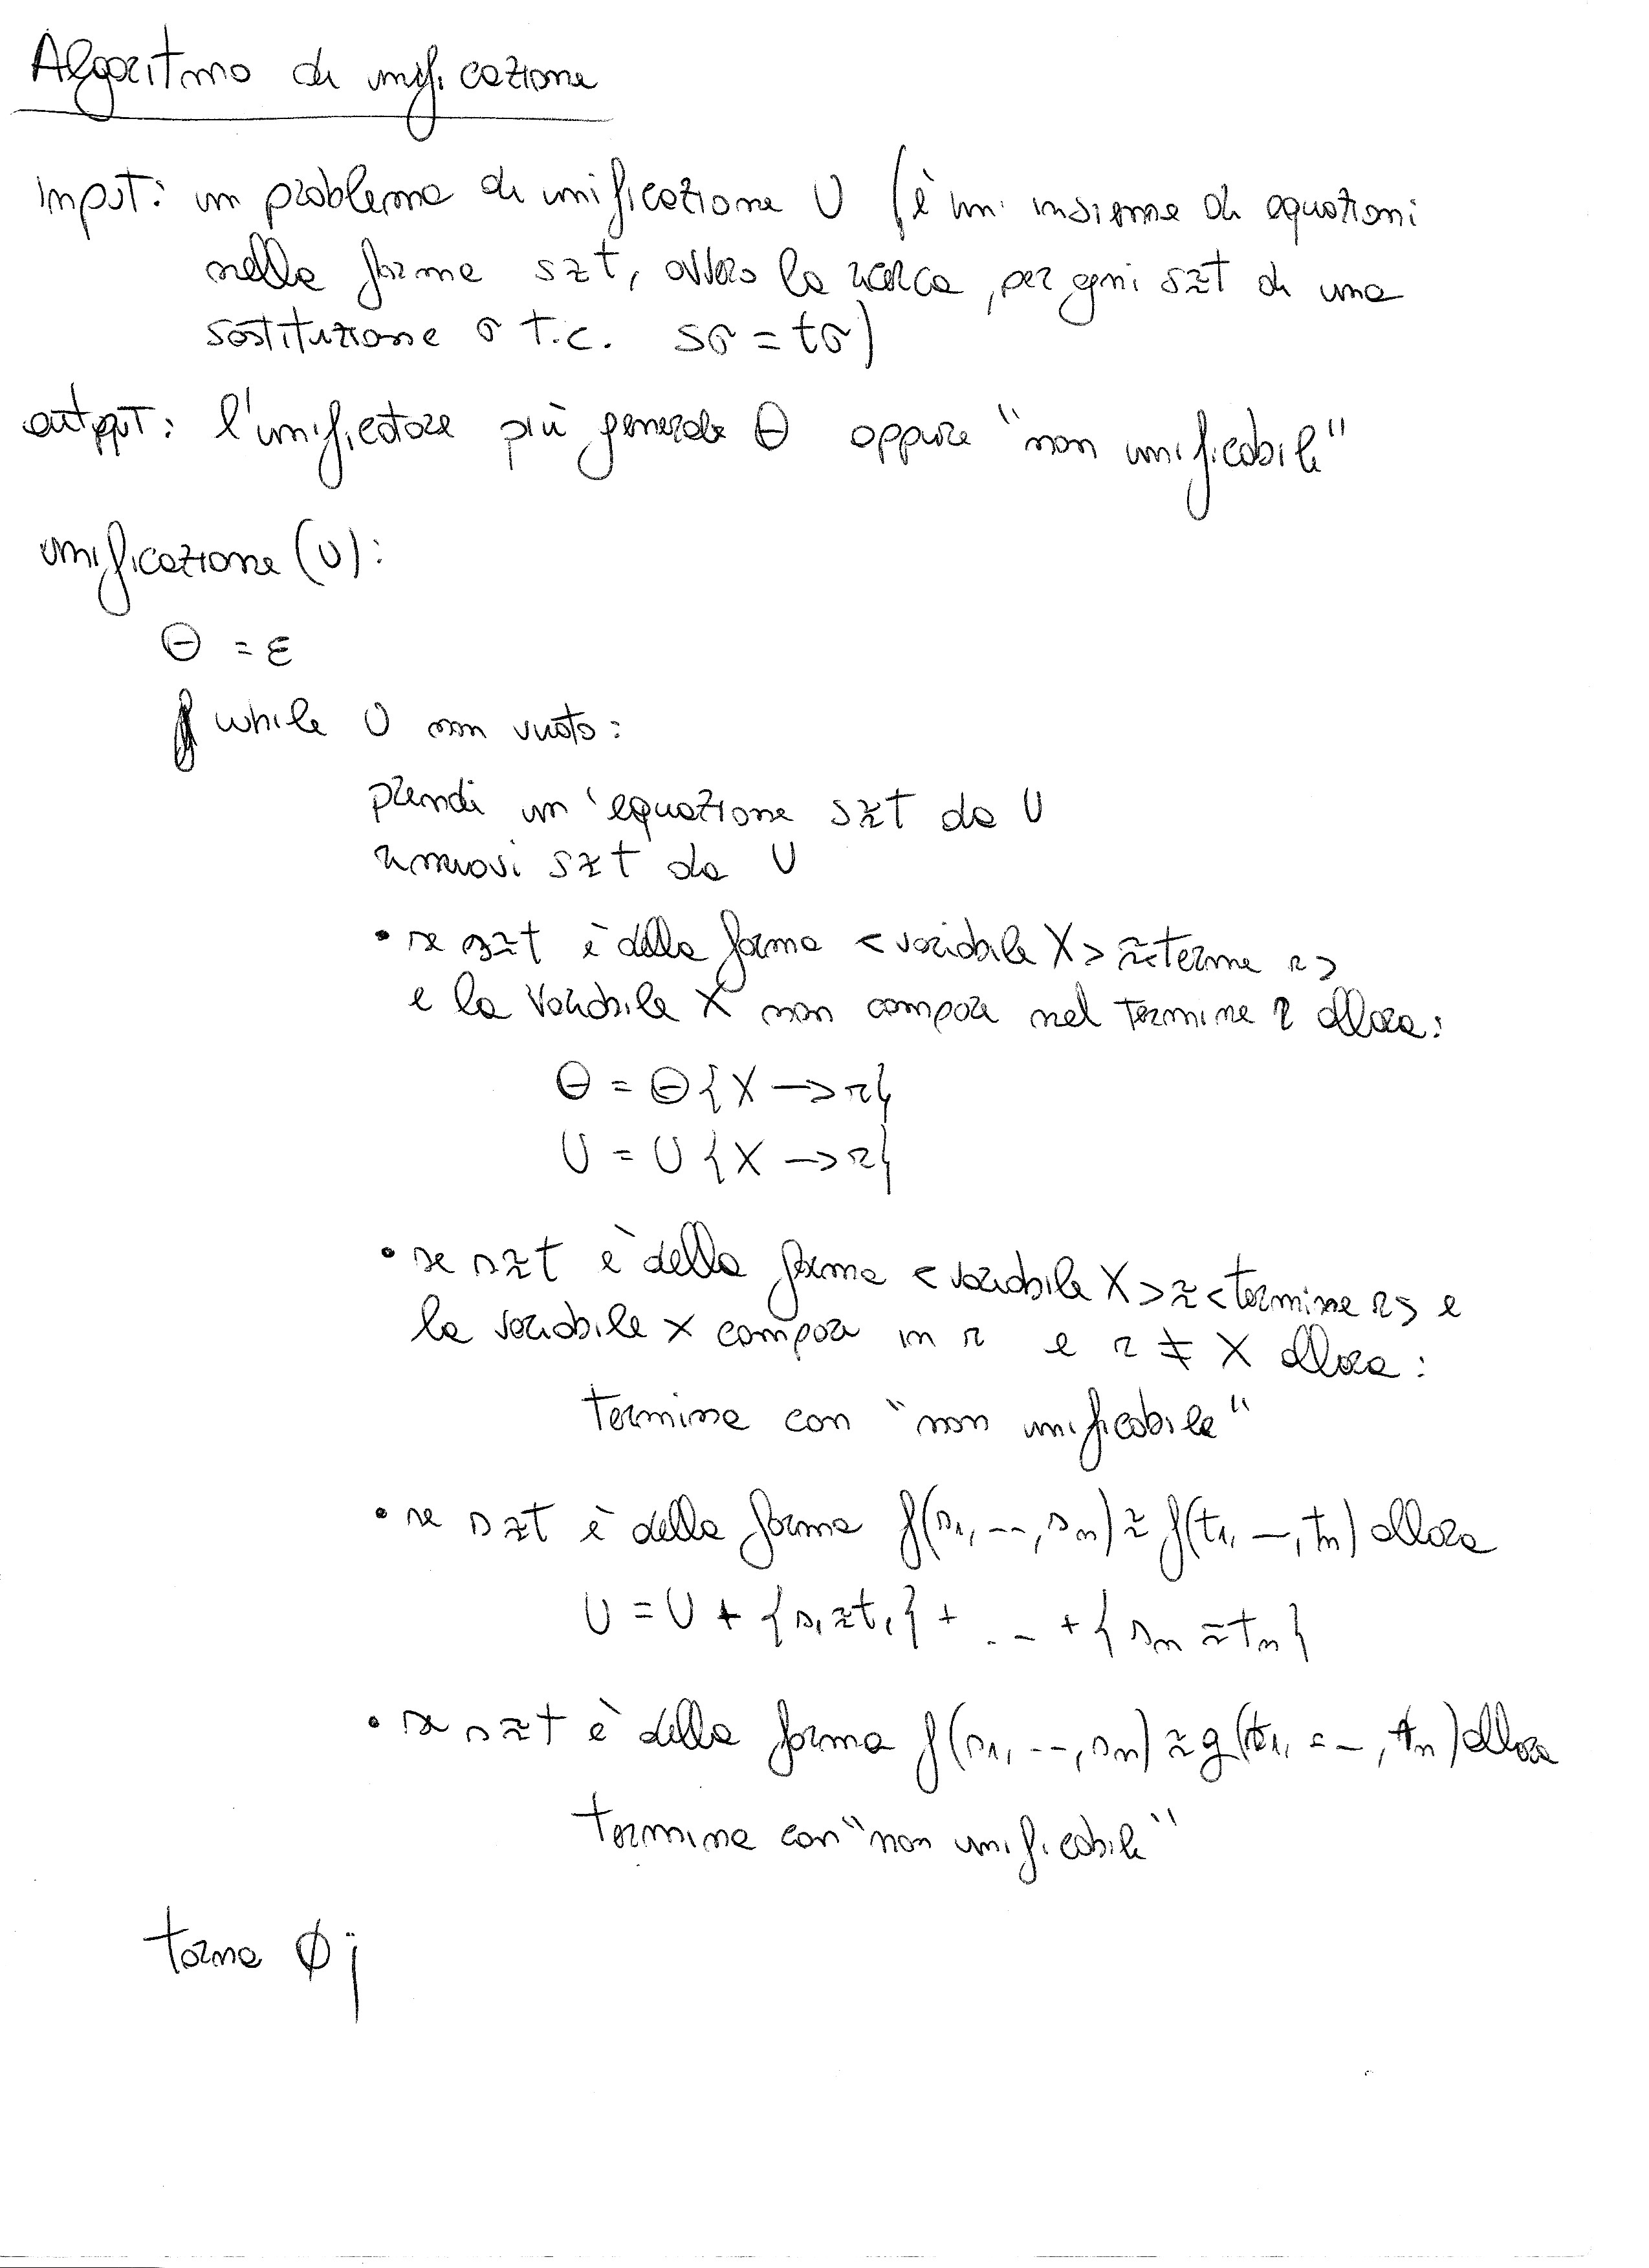 Algoritmo di unificazione
input: un problema di unificazione U (è un insieme di equazioni
nella forma s≈t, ovvero la ricerca, per ogni s≈t di una
sostituzione σ t.c. sσ = tσ)
output: l'unificatore più generale Θ oppure "non unificabile"
unificazione (U):
Θ = ε
while U non vuoto:
prendi un'equazione s≈t da U
rimuovi s≈t da U
• se s≈t è della forma <variabile X> ≈ <termine r>
e la variabile X non compare nel termine r allora:
Θ = Θ{X → r}
U = U{X → r}
• se s≈t è della forma <variabile X> ≈ <termine r> e
la variabile x compare in r e r ≠ X allora:
termina con "non unificabile"
• se s≈t è della forma f(s1, --, sn) ≈ f(t1, --, tn) allora
U = U + {s1≈t1} + ... + {sn≈tn}
• se s≈t è della forma f(s1, --, sn) ≈ g(t1, --, tn) allora
termina con "non unificabile"
torna ϕ;